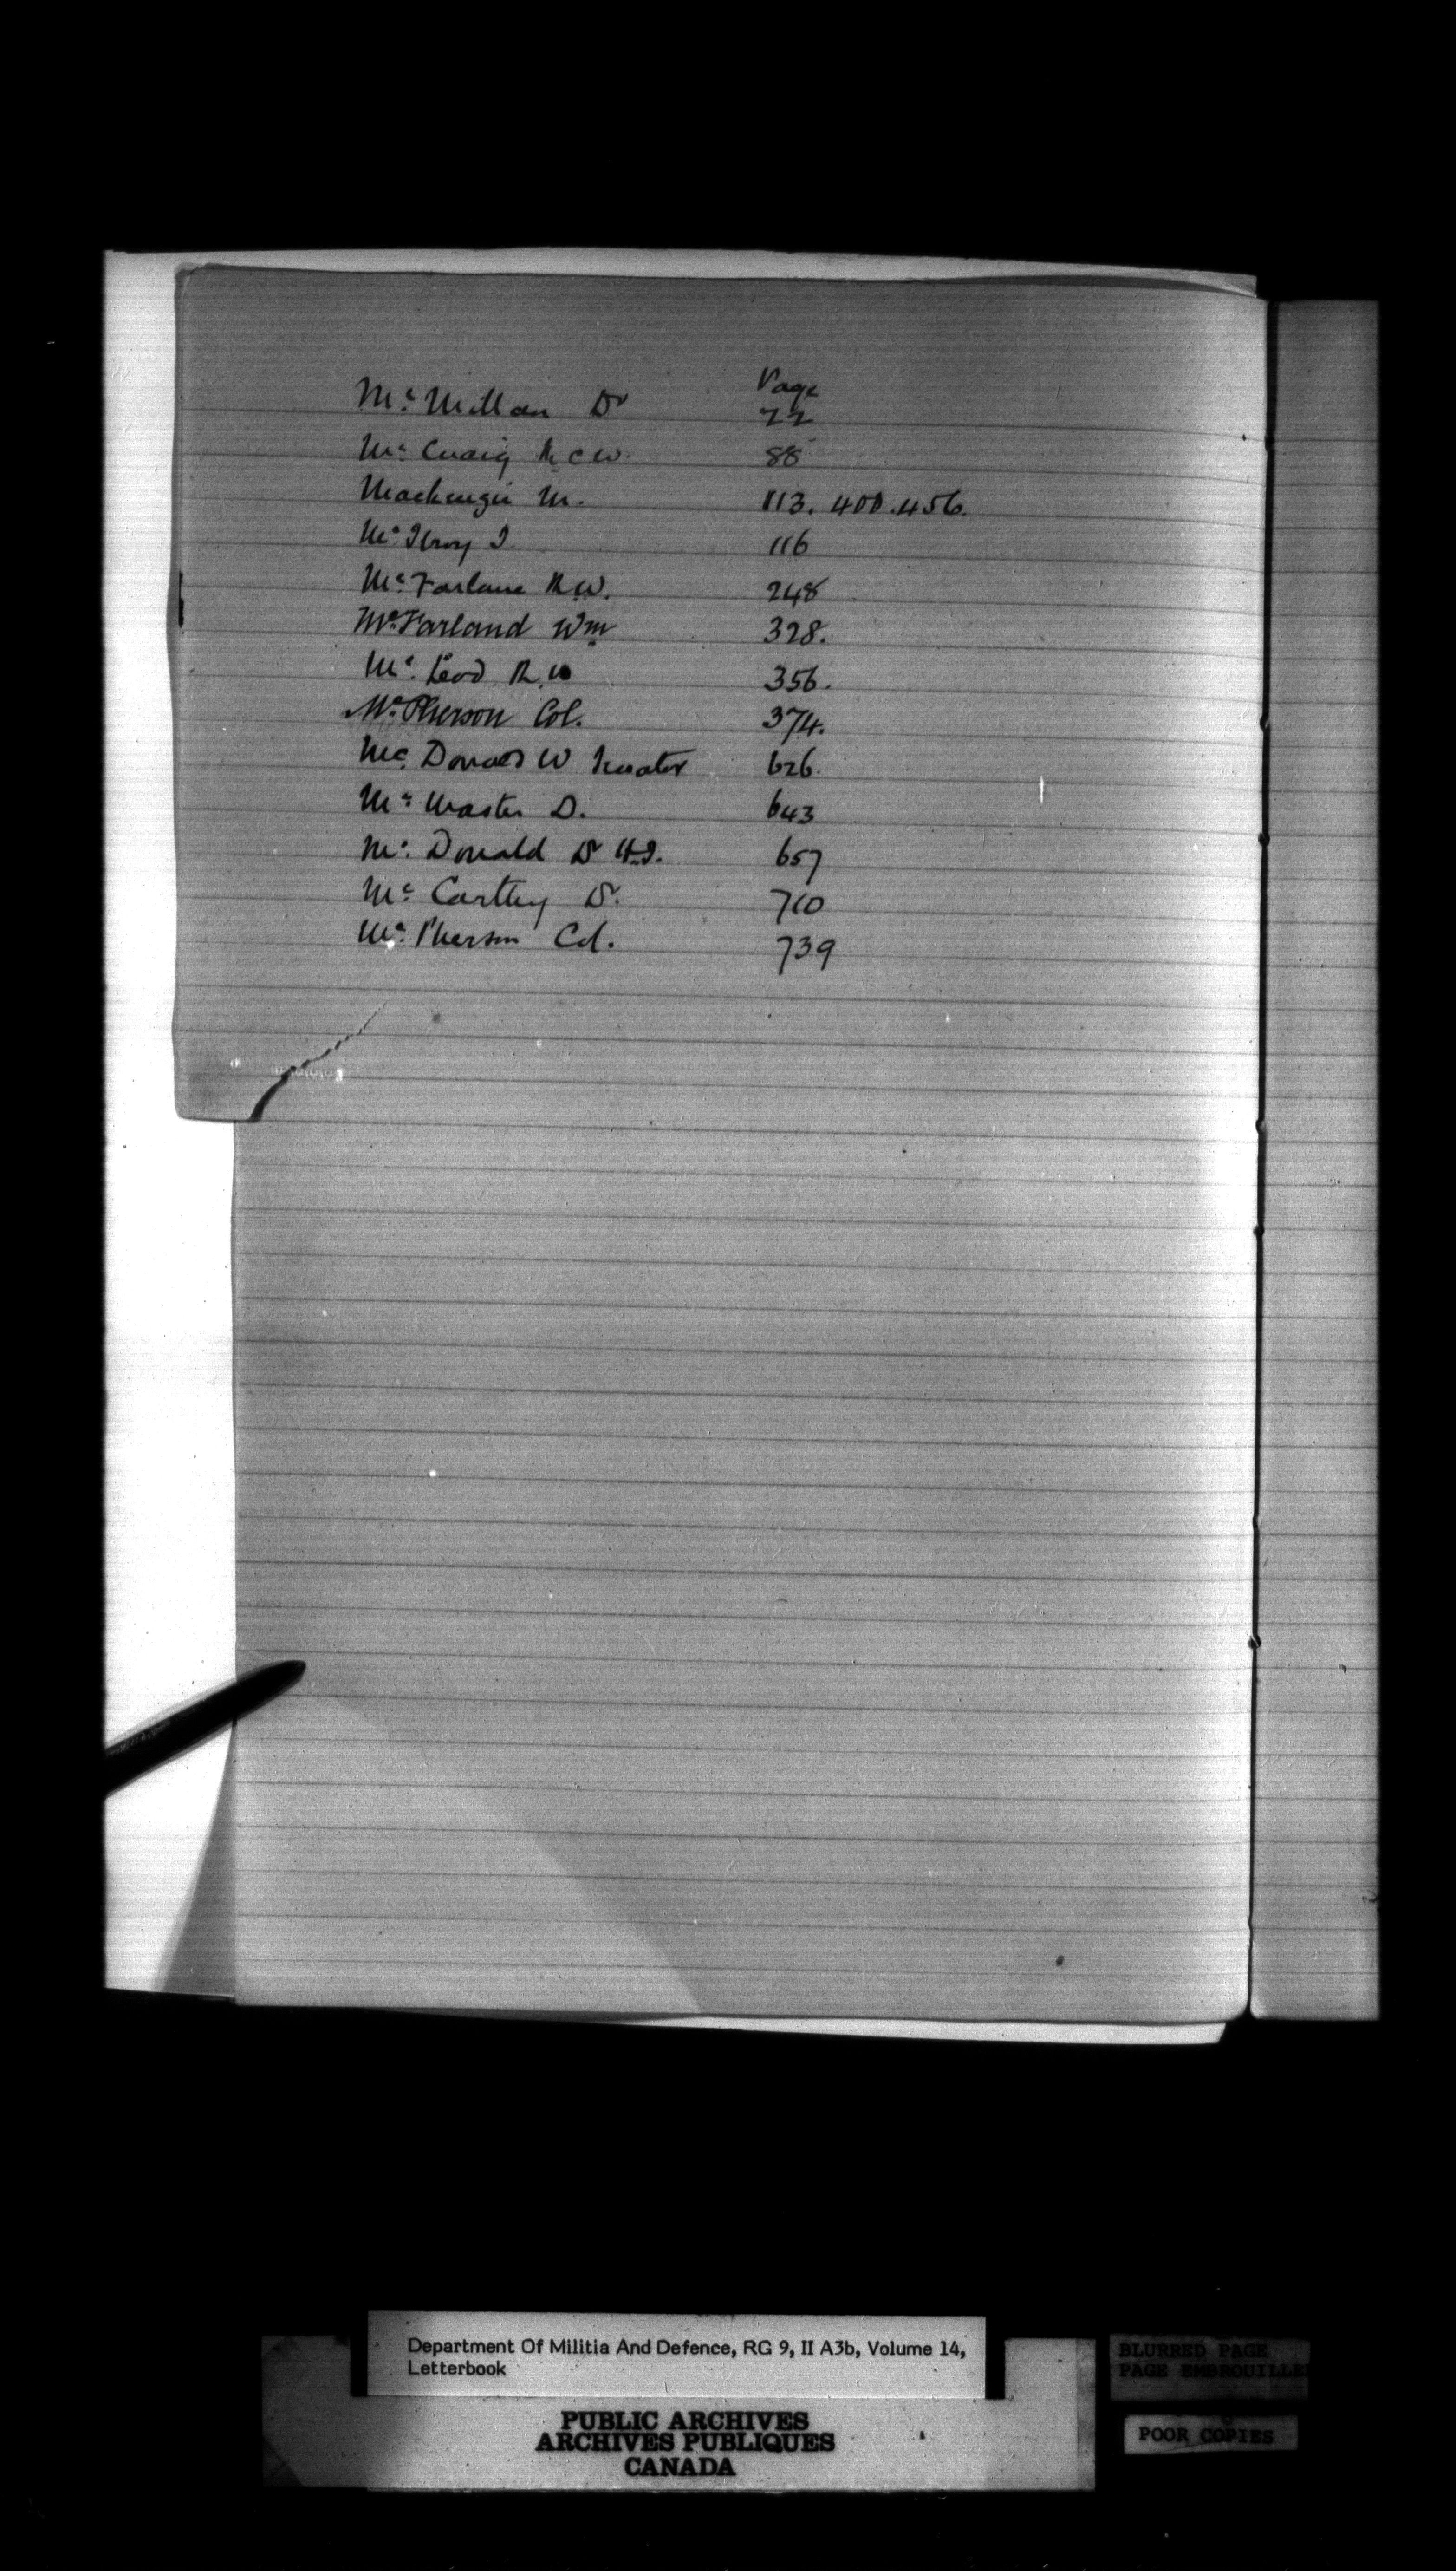 Page
Mc Millan Dr 22
Mc Cuaig R C W. 88
Mackenzie M. 113. 400. 456.
Mc Ilroy J 116
Mc Farlane R.W. 248
Mc Farland Wm 328.
Mc Leod R. W 356.
Mc Pherson Col. 374.
Mc Donald W Senator 626.
Mc Master D. 643
Mc Donald Dr H.J. 657
Mc Carthy D. 710
Mc Pherson Col. 739
Department Of Militia And Defence, RG 9, II A3b, Volume 14,
Letterbook
PUBLIC ARCHIVES
ARCHIVES PUBLIQUES
CANADA
BLURRED PAGE
PAGE EMBROUILLE
POOR COPIES